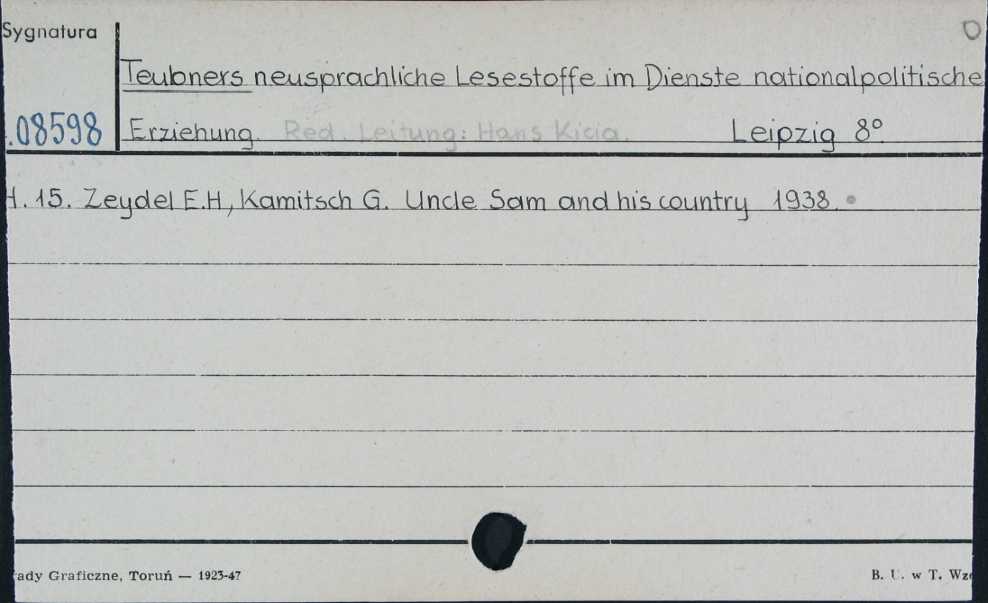 Sygnatura
Teubners neusprachliche Lesestoffe im Dienste nationalpolitische
.08598 Erziehung. Red. Leitung: Hans Kicia. Leipzig 8°.
H. 15. Zeydel E.H, Kamitsch G. Uncle Sam and his country 1938.
ady Graficzne, Toruń — 1923-47 B. U. w T. Wzó